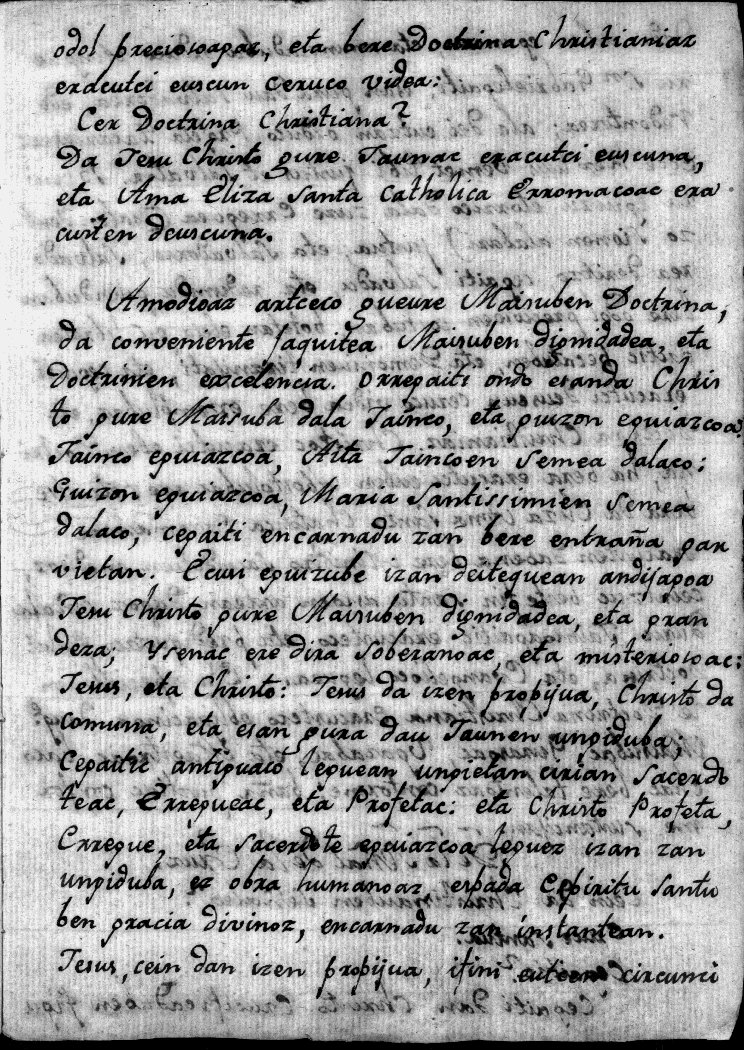 odol preciosoagaz, eta bere Doctrina Christianiaz
eracutci euscun ceruco videa:
Cer Doctrina Christiana?
Da Jesu Christo gure Jaunac eracutci euscuna,
eta Ama Eliza Santa Catholica Erromacoac era
custen deuscuna.
Amodioaz artceco gueure Maisuben Doctrina,
da conveniente Jaquitea Maisuben dignidadea, eta
Doctrinien excelencia. Orregaiti ondo esanda Chris
to gure Maisuba dala Jainco, eta guizon eguiazcoa.
Jainco eguiazcoa, Aita Jaincoen Semea dalaco:
Guizon eguiazcoa, Maria Santissimien Semea
dalaco, cegaiti encarnadu zan bere entraña gar
vietan. Ecusi eguizube izan deitequean andijagoa
Jesu Christo gure Maisuben dignidadea, eta gran
deza; Ysenac ere dira Soberanoac, eta misteriosoac:
Jesus, eta Christo: Jesus da izen propijua, Christo da
comuna, eta esan gura dau Jaunen ungiduba:
Cegaitic antiguaco leguean ungietan cirian Sacerdo
teac, Erregueac, eta Profetac: eta Christo Profeta,
Erregue, eta Sacerdote eguiazcoa leguez izan zan
ungiduba, ez obra humanoaz, ezpada Espiritu Santu
ben gracia divinoz, encarnadu zan instantean.
Jesus, cein dan izen propijua, ifini eutceen circunci